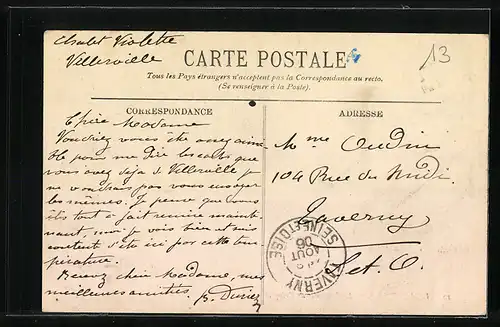 Chalet Violette
Villerville
13
CARTE POSTALE
Tous les Pays étrangers n'acceptent pas la Correspondance au recto.
(Se renseigner à la Poste).
CORRESPONDANCE
Chère Madame
Voudriez vous être assez aima
ble pour me dire les cartes que
vous avez déjà de Villerville je
ne voudrais pas vous envoyer
les mêmes. Je pense que vous
êtes tout à fait remise mainte
nant, moi je vais bien et suis
content d'être ici par cette tem
pérature.
Recevez chère Madame, mes
meilleures amitiés.
ADRESSE
Mme Oudin
104 Rue du Midi
Taverny
Set. O.
TAVERNY
AOUT
06
SEINE ET OISE